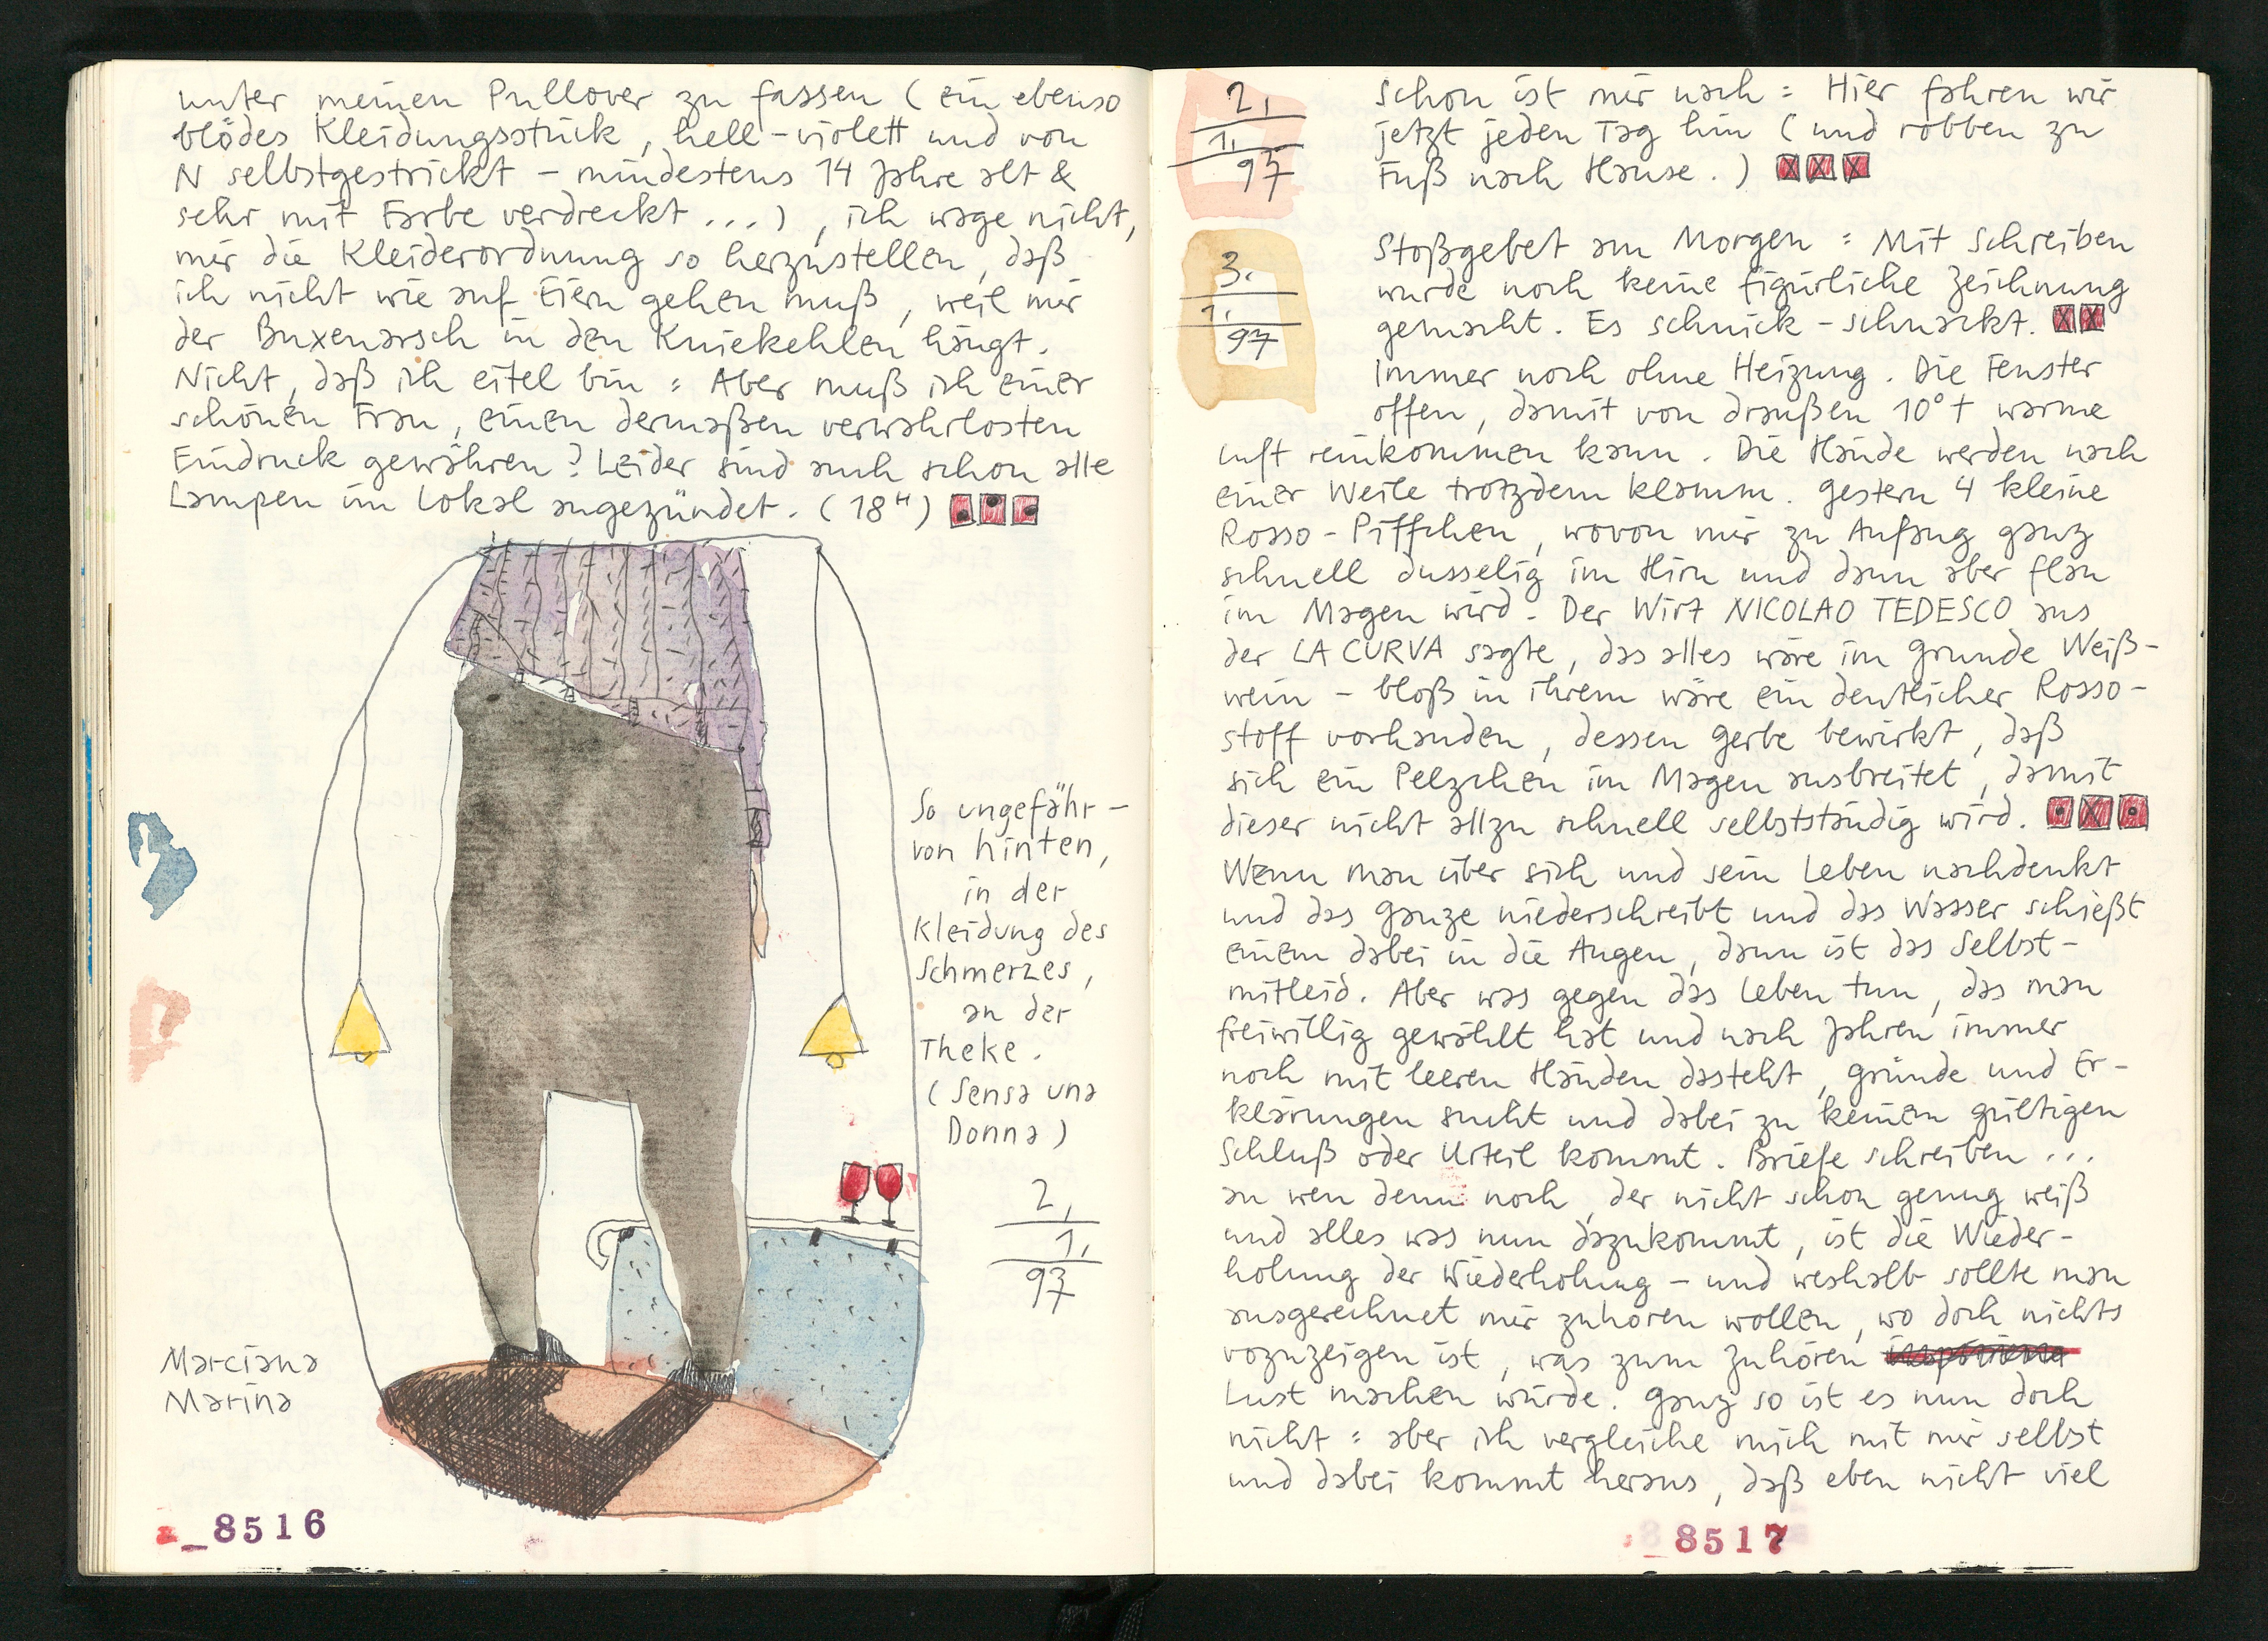 unter meinen Pullover zu fassen (ein ebenso
blödes Kleidungsstück, hell-violett und von
N selbstgestrickt – mindestens 14 Jahre alt &
sehr mit Farbe verdreckt...), ich wage nicht,
mir die Kleiderordnung so herzustellen, daß
ich nicht wie auf Eiern gehen muß, weil mir
der Buxenarsch in den Kniekehlen hängt.
Nicht, daß ich eitel bin : Aber muß ich einer
schönen Frau, einen dermaßen verwahrlosten
Eindruck gewähren? Leider sind auch schon alle
Lampen im Lokal angezündet. (18ᴴ)
So ungefähr –
von hinten,
in der
Kleidung des
Schmerzes,
an der
Theke.
(Sensa una
Donna)
2.
1.
97
Marciana
Marina
_8516
2.
1.
97
schon ist mir nach : Hier fahren wir
jetzt jeden Tag hin (und robben zu
Fuß nach Hause.)
3.
1.
97
Stoßgebet am Morgen : Mit Schreiben
wurde noch keine figürliche Zeichnung
gemacht. Es schnick-schnackt.
Immer noch ohne Heizung. Die Fenster
offen, damit von draußen 10°+ warme
Luft reinkommen kann. Die Hände werden nach
einer Weile trotzdem klamm. Gestern 4 kleine
Rosso-Piffchen, wovon mir zu Anfang ganz
schnell dusselig im Hirn und dann aber flau
im Magen wird. Der Wirt NICOLAO TEDESCO aus
der LA CURVA sagte, das alles wäre im Grunde Weiß-
wein – bloß in ihrem wäre ein deutlicher Rosso-
stoff vorhanden, dessen Gerbe bewirkt, daß
sich ein Pelzchen im Magen ausbreitet, damit
dieser nicht allzu schnell selbstständig wird.
Wenn man über sich und sein Leben nachdenkt
und das Ganze niederschreibt und das Wasser schießt
einem dabei in die Augen, dann ist das Selbst-
mitleid. Aber was gegen das Leben tun, das man
freiwillig gewählt hat und nach Jahren immer
noch mit leeren Händen dasteht, Gründe und Er-
klärungen sucht und dabei zu keinem gültigen
Schluß oder Urteil kommt. Briefe schreiben...
an wen denn noch, der nicht schon genug weiß
und alles was nun dazukommt, ist die Wieder-
holung der Wiederholung – und weshalb sollte man
ausgerechnet mir zuhören wollen, wo doch nichts
vozuzeigen ist, was zum Zuhören
Lust machen würde. Ganz so ist es nun doch
nicht : aber ich vergleiche mich mit mir selbst
und dabei kommt heraus, daß eben nicht viel
_8517